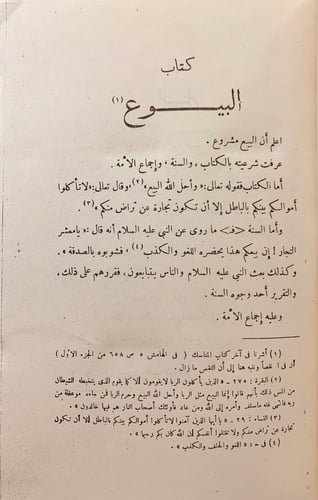 كتاب
البيـــوع (١)
اعلم أن البيع مشروع .
عرفت شرعيته بالكتاب ، والسنة ، وإجماع الأمة .
أما الكتاب فقوله تعالى : « وأحل الله البيع » (٢) وقال تعالى : « لا تأكلوا
أموالكم بينكم بالباطل إلا أن تكون تجارة عن تراض منكم » (٣) .
وأما السنة <فـ> ما روى عن النبي عليه السلام أنه قال : « يا معشر
التجار ! إن بيعكم هذا يحضره اللغو والكذب (٤) ، فشوبوه بالصدقة » .
وكذلك بعث النبي عليه السلام والناس يتبايعون ، فقررهم على ذلك ،
والتقرير أحد وجوه السنة .
وعليه إجماع الأمة .
(١) أشرنا في آخر كتاب المناسك ( في الهامش ٥ ص ٦٥٨ من الجزء الأول )
أن في ا نقصاً ونبه هنا إلى أن النقص ما زال .
(٢) البقرة : ٢٧٥ ـ « الذين يأكلون الربا لا يقومون إلا كما يقوم الذي يتخبطه الشيطان
من المس ذلك بأنهم قالوا إنما البيع مثل الربا وأحل الله البيع وحرم الربا فمن جاءه موعظة من
ربه فانتهى فله ما سلف وأمره إلى الله ومن عاد فأولئك أصحاب النار هم فيها خالدون » .
(٣) النساء : ٢٩ ـ « يا أيها الذين آمنوا لا تأكلوا أموالكم بينكم بالباطل إلا أن تكون
تجارة عن تراض منكم ولا تقتلوا أنفسكم إن الله كان بكم رحيما » .
(٤) في ح : « اللغو والحلف والكذب » .